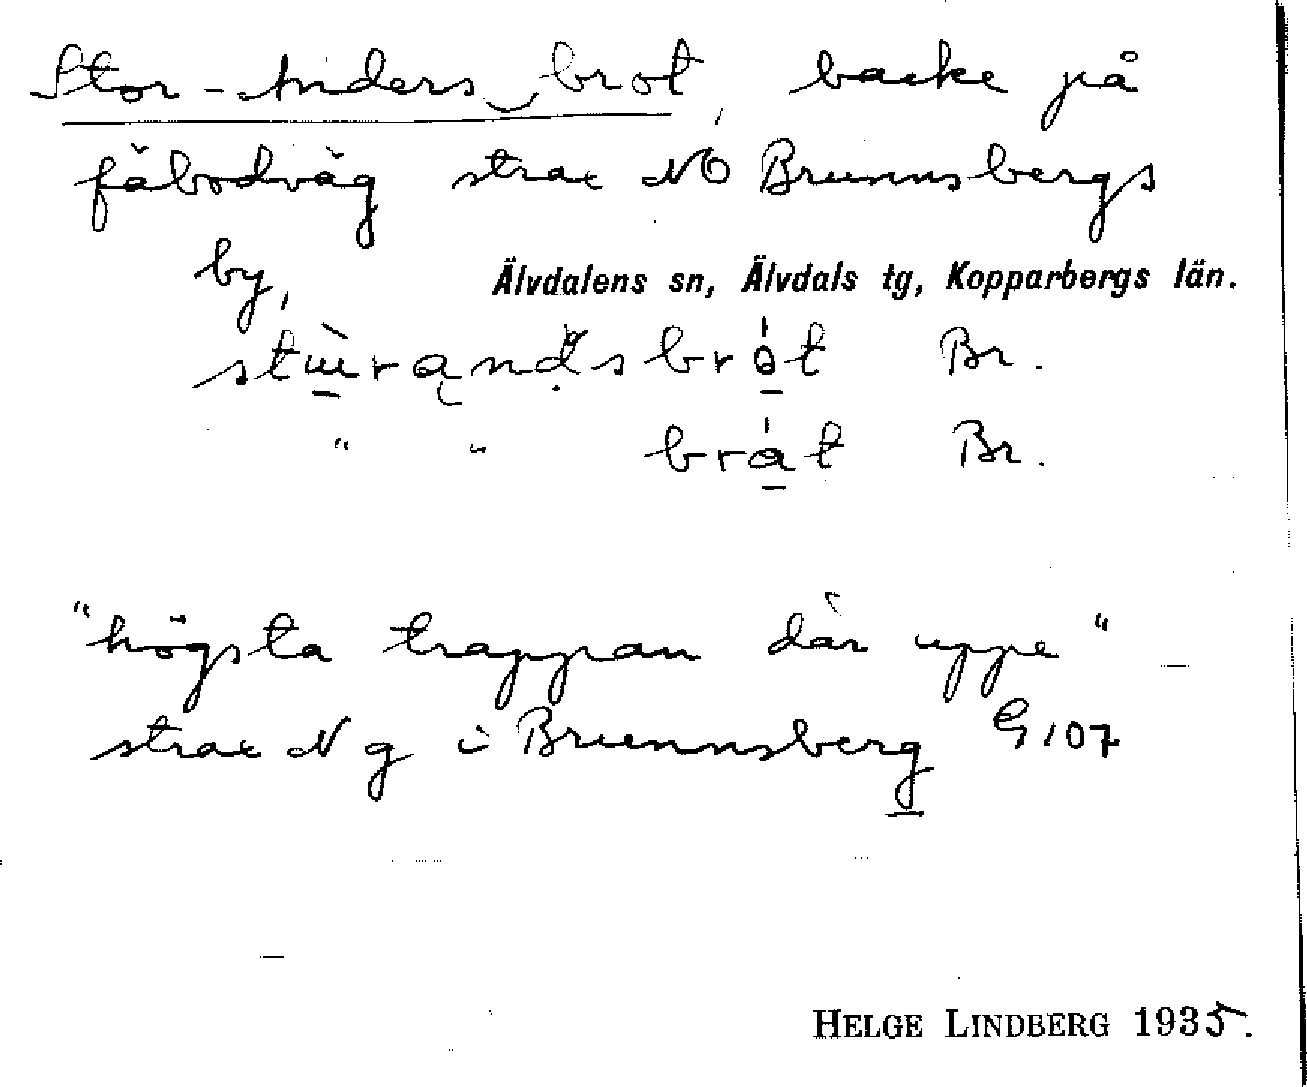 Stor-Anders brot, backe på
fäbodväg strax NO Brunnsbergs
by,
Älvdalens sn, Älvdals tg, Kopparbergs län.
Br.
" " brát Br.
"högsta trappan där uppe"
strax N g i Brunnsberg G 107
HELGE LINDBERG 1935.